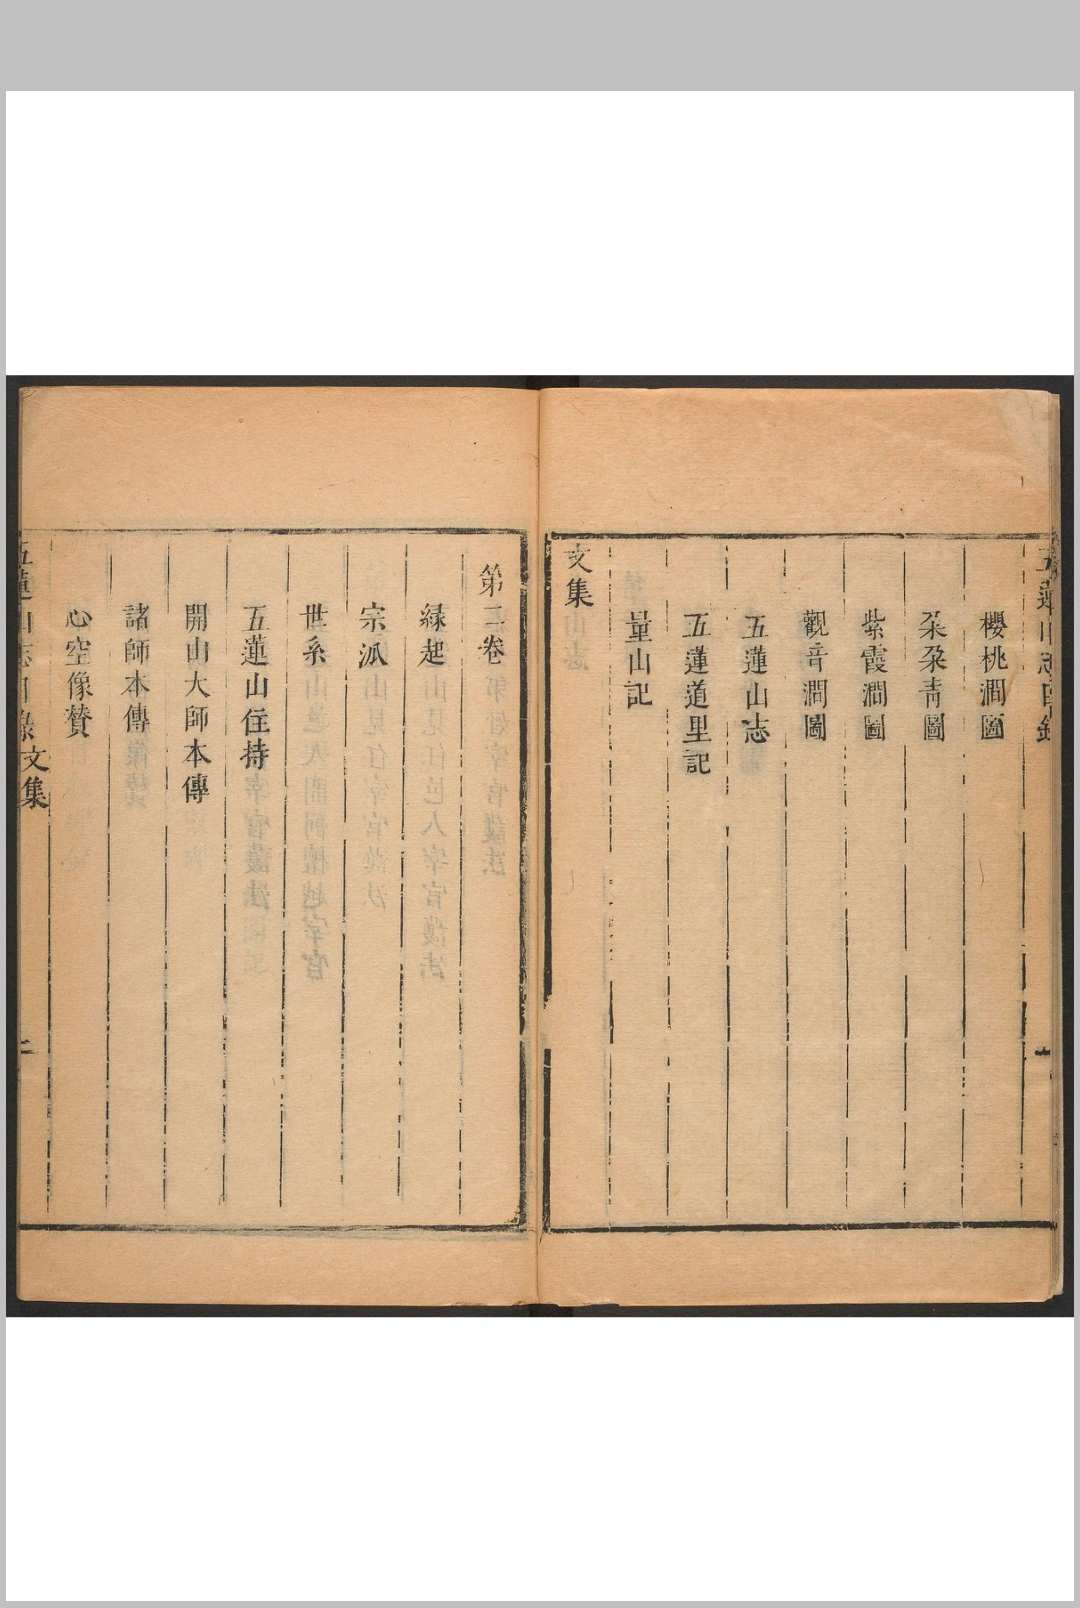 五蓮山志目錄
櫻桃澗圖
朶朶青圖
紫霞澗圖
觀音澗圖
五蓮山志
五蓮道里記
量山記
文集
第二卷
緣起
宗派
世系
五蓮山住持
開山大師本傳
諸師本傳
心空像賛
五蓮山志目錄 文集